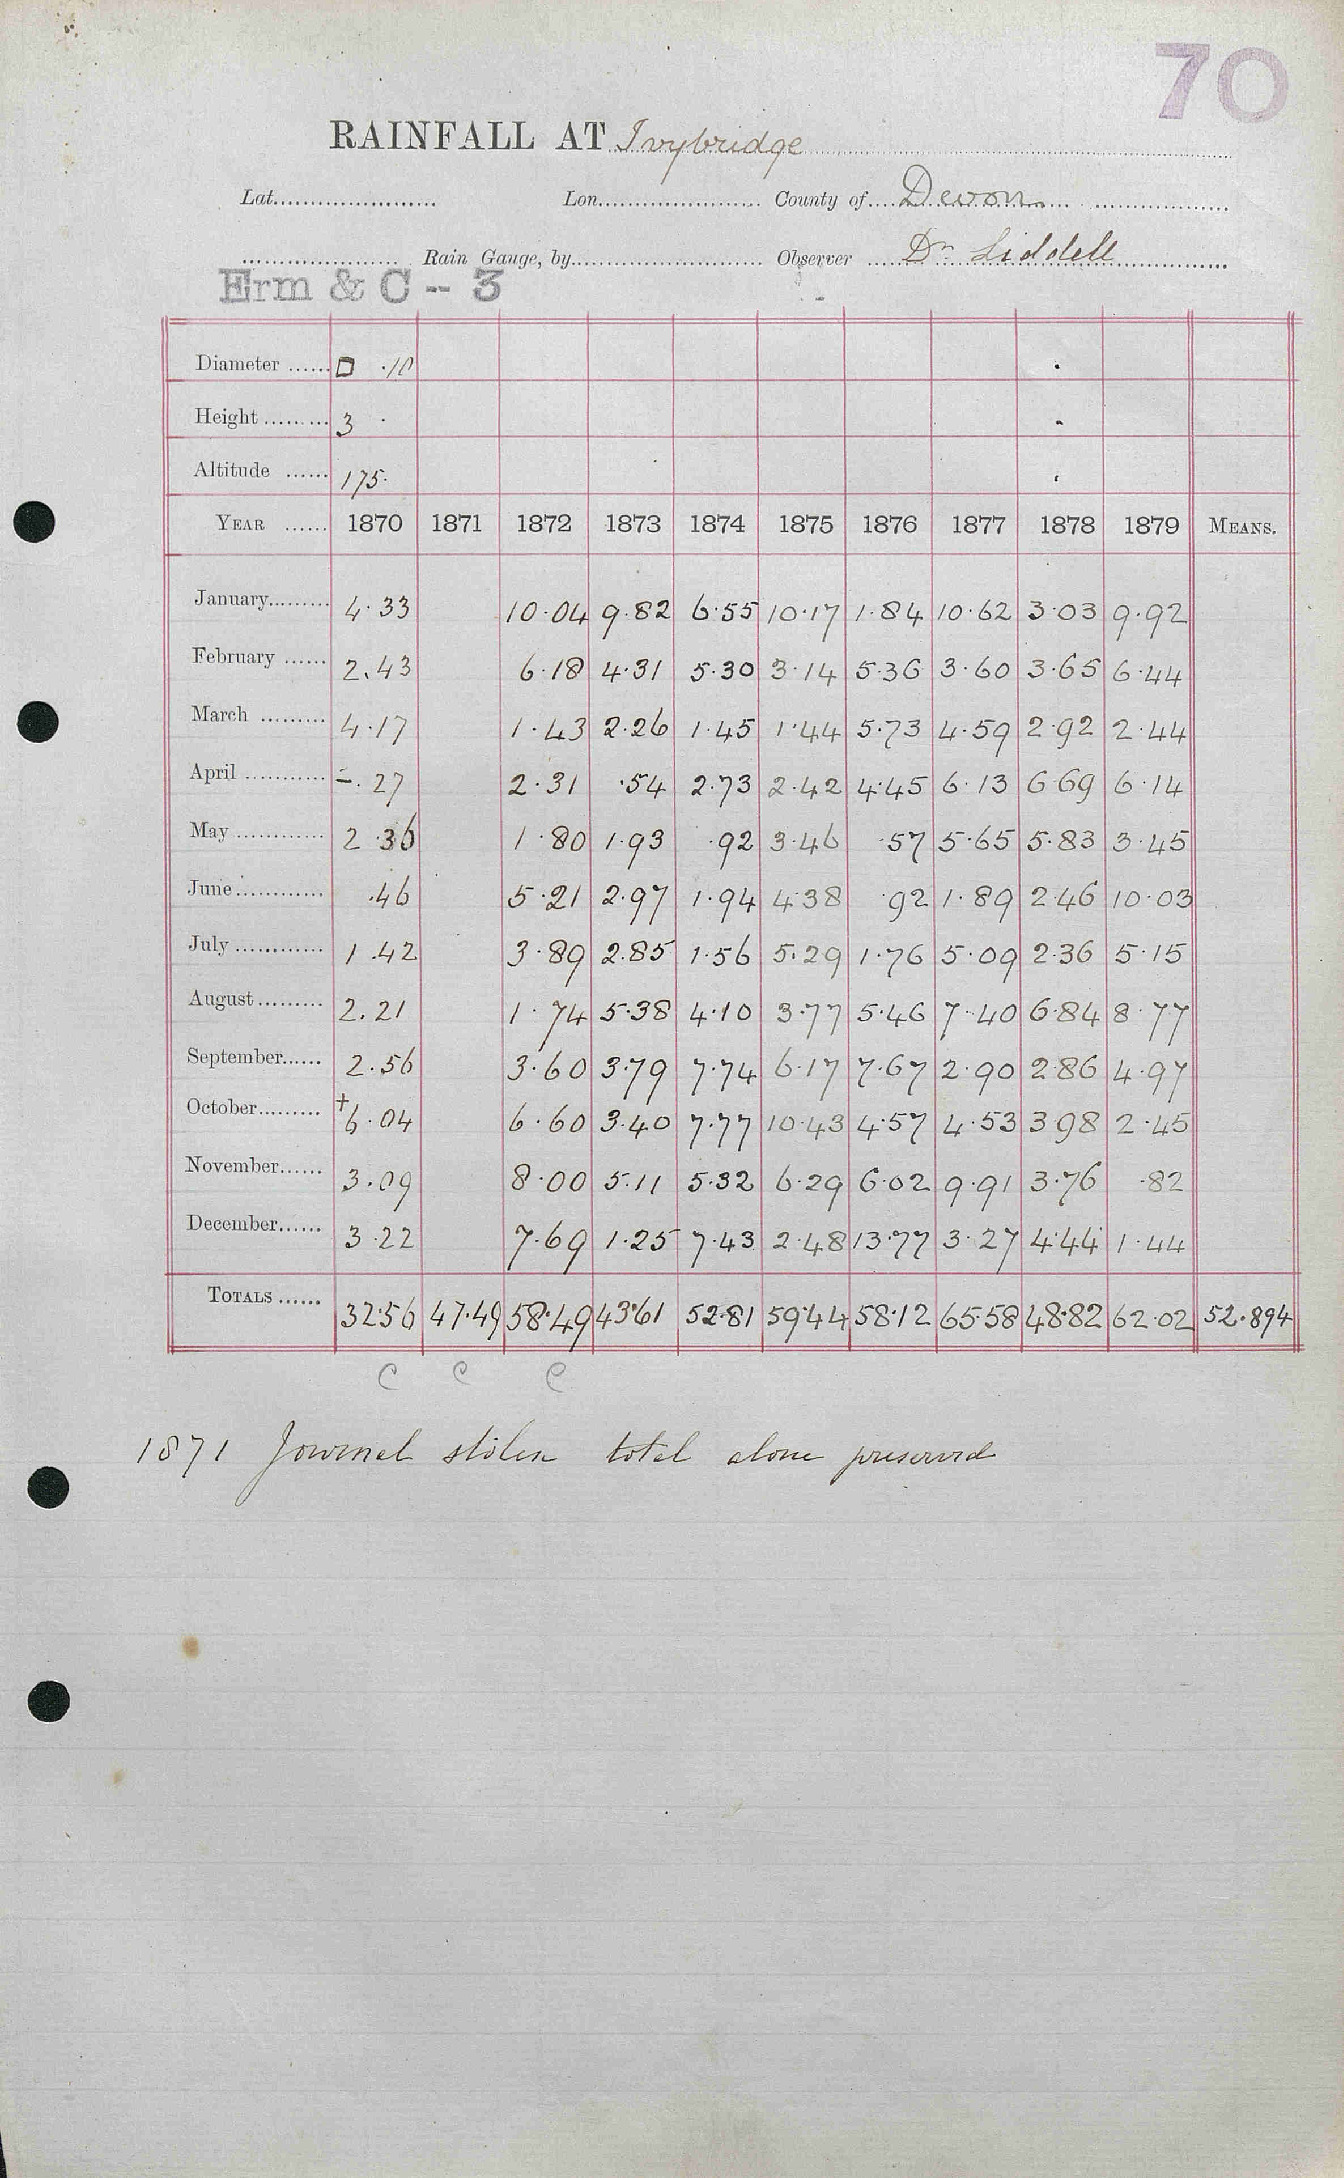 70
RAINFALL AT Ivybridge
Lat. Lon. County of Devon
Rain Gauge, by Observer Dr Liddell
Erm & C -- 3
Diameter □ .10
Height 3
Altitude 175.
YEAR 1870 1871 1872 1873 1874 1875 1876 1877 1878 1879 MEANS.
January 4.33 10.04 9.82 6.55 10.17 1.84 10.62 3.03 9.92
February 2.43 6.18 4.31 5.30 3.14 5.36 3.60 3.65 6.44
March 4.17 1.43 2.26 1.45 1.44 5.73 4.59 2.92 2.44
April -.27 2.31 .54 2.73 2.42 4.45 6.13 6.69 6.14
May 2.36 1.80 1.93 .92 3.46 .57 5.65 5.83 3.45
June .46 5.21 2.97 1.94 4.38 .92 1.89 2.46 10.03
July 1.42 3.89 2.85 1.56 5.29 1.76 5.09 2.36 5.15
August 2.21 1.74 5.38 4.10 3.77 5.46 7.40 6.84 8.77
September 2.56 3.60 3.79 7.74 6.17 7.67 2.90 2.86 4.97
October +6.04 6.60 3.40 7.77 10.43 4.57 4.53 3.98 2.45
November 3.09 8.00 5.11 5.32 6.29 6.02 9.91 3.76 .82
December 3.22 7.69 1.25 7.43 2.48 13.77 3.27 4.44 1.44
TOTALS 32.56 47.49 58.49 43.61 52.81 59.44 58.12 65.58 48.82 62.02 52.894
C C C
1871 Journal stolen total alone preserved